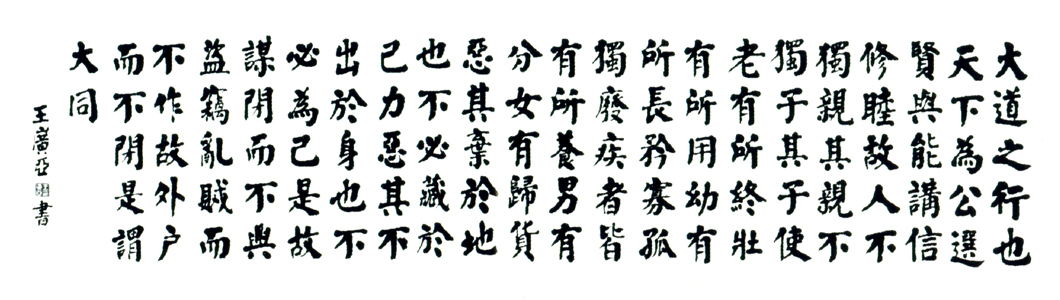 大道之行也
天下為公選
賢與能講信
修睦故人不
獨親其親不
獨子其子使
老有所終壯
有所用幼有
所長矜寡孤
獨廢疾者皆
有所養男有
分女有歸貨
惡其棄於地
也不必藏於
己力惡其不
出於身也不
必為己是故
謀閉而不興
盜竊亂賊而
不作故外户
而不閉是謂
大同
王廣亞書